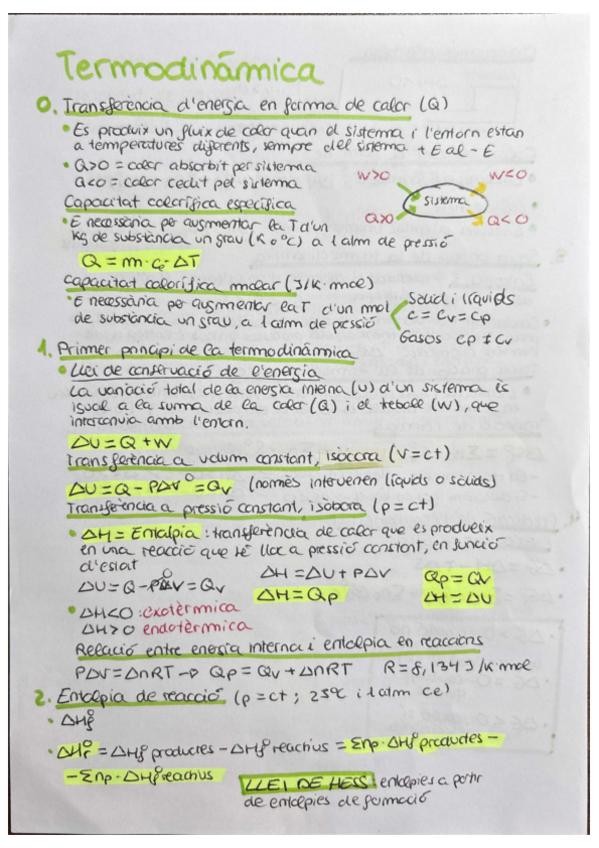 Termodinâmica
0. Transferència d'energia en forma de calor (Q)
• Es produix un fluix de calor quan el sistema i l'entorn estan
a temperatures diferents, sempre del sistema + E al - E
• Q>0 = calor absorbit per sistema
Q<0 = calor cedut pel sistema
W>0 W<0
sistema
Q>0 Q<0
Capacitat calorífica específica
• E necessària per augmentar la T d'un
Kg de substància un grau (K o ºC) a 1 atm de pressió
Q = m · ce · ΔT
Capacitat calorífica molar (J/K·mol)
• E necessària per augmentar la T d'un mol
de substància un grau, a 1 atm de pressió
Sòlid i líquids
c = cv = cp
Gasos cp ≠ cv
1. Primer principi de la termodinàmica
• Llei de conservació de l'energia
La variació total de la energia interna (U) d'un sistema és
igual a la suma de la calor (Q) i el treball (W), que
intercanvia amb l'entorn.
ΔU = Q + W
Transferència a volum constant, isòcora (V = ct)
ΔU = Q - PΔV⁰ = Qv (només intervenen líquids o sòlids)
Transferència a pressió constant, isòbora (p = ct)
• ΔH = Entalpia: transferència de calor que es produeix
en una reacció que té lloc a pressió constant, en funció
d'estat
ΔU = Q - PΔV⁰ = Qv
ΔH = ΔU + PΔV
ΔH = Qp
Qp = Qv
ΔH = ΔU
• ΔH<0 : exotèrmica
ΔH>0 endotèrmica
Relació entre energia interna i entalpia en reaccions
PΔV = ΔnRT → Qp = Qv + ΔnRT R = 8,134 J/K·mol
2. Entalpia de reacció (p = ct ; 25ºC i 1 atm Ce)
• ΔHfº
• ΔHrº = ΔHfº productes - ΔHfº reactius = Σnp · ΔHfº productes -
- Σnp · ΔHfº reactius
LLEI DE HESS: entalpies a partir
de entalpies de formació